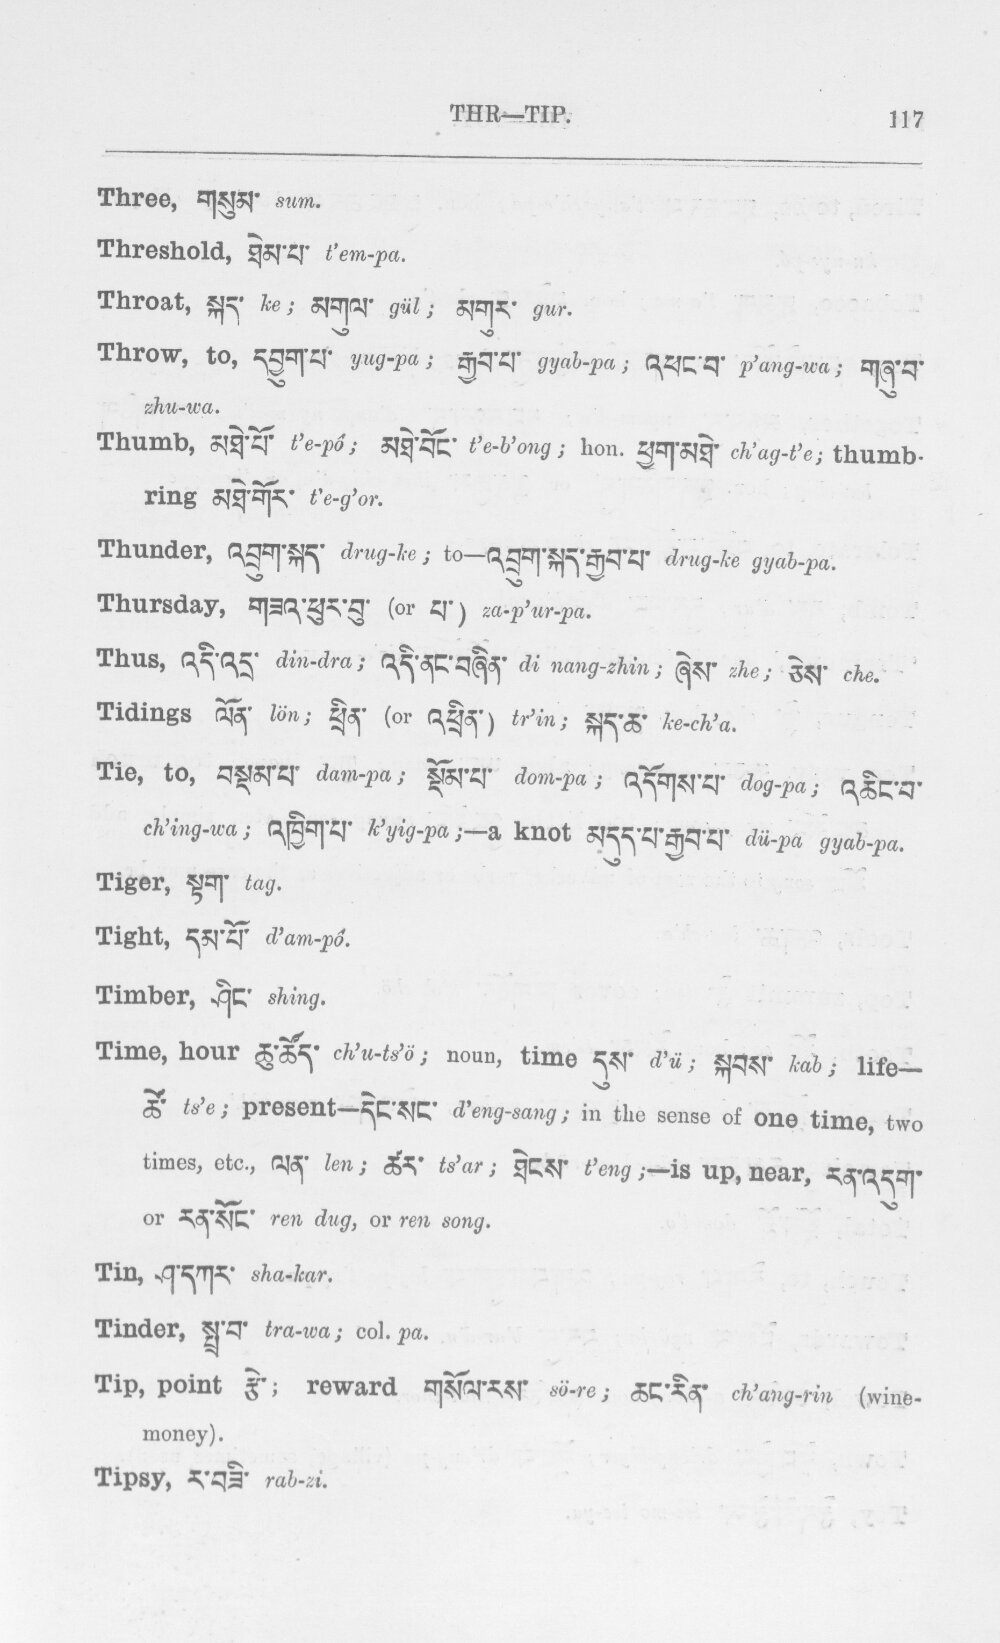 THR—TIP. 117
Three, གསུམ་ sum.
Threshold, ཐེམ་པ་ t'em-pa.
Throat, སྐད་ ke; མགུལ་ gül; མགུར་ gur.
Throw, to, དབྱུག་པ་ yug-pa; རྒྱབ་པ་ gyab-pa; འཕང་བ་ p'ang-wa; གཞུ་བ་
zhu-wa.
Thumb, མཐེ་པོ་ t'e-pó; མཐེ་བོང་ t'e-b'ong; hon. ཕྱག་མཐེ་ ch'ag-t'e; thumb-
ring མཐེ་གོར་ t'e-g'or.
Thunder, འབྲུག་སྐད་ drug-ke; to—འབྲུག་སྐད་རྒྱབ་པ་ drug-ke gyab-pa.
Thursday, གཟའ་ཕུར་བུ་ (or པ་) za-p'ur-pa.
Thus, འདི་འདྲ་ din-dra; འདི་ནང་བཞིན་ di nang-zhin; ཞེས་ zhe; ཅེས་ che.
Tidings ལོན་ lön; ཕྲིན་ (or འཕྲིན་) tr'in; སྐད་ཆ་ ke-ch'a.
Tie, to, བསྡམ་པ་ dam-pa; སྡོམ་པ་ dom-pa; འདོགས་པ་ dog-pa; འཆིང་བ་
ch'ing-wa; འཁྱིག་པ་ k'yig-pa;—a knot མདུད་པ་རྒྱབ་པ་ dü-pa gyab-pa.
Tiger, སྟག་ tag.
Tight, དམ་པོ་ d'am-pó.
Timber, ཤིང་ shing.
Time, hour ཆུ་ཚོད་ ch'u-ts'ö; noun, time དུས་ d'ü; སྐབས་ kab; life—
ཚེ་ ts'e; present—དེང་སང་ d'eng-sang; in the sense of one time, two
times, etc., ལན་ len; ཚར་ ts'ar; ཐེངས་ t'eng;—is up, near, རན་འདུག་
or རན་སོང་ ren dug, or ren song.
Tin, ཤ་དཀར་ sha-kar.
Tinder, སྤྲ་བ་ tra-wa; col. pa.
Tip, point རྩེ་; reward གསོལ་རས་ sö-re; ཆང་རིན་ ch'ang-rin (wine-
money).
Tipsy, ར་བཟི་ rab-zi.